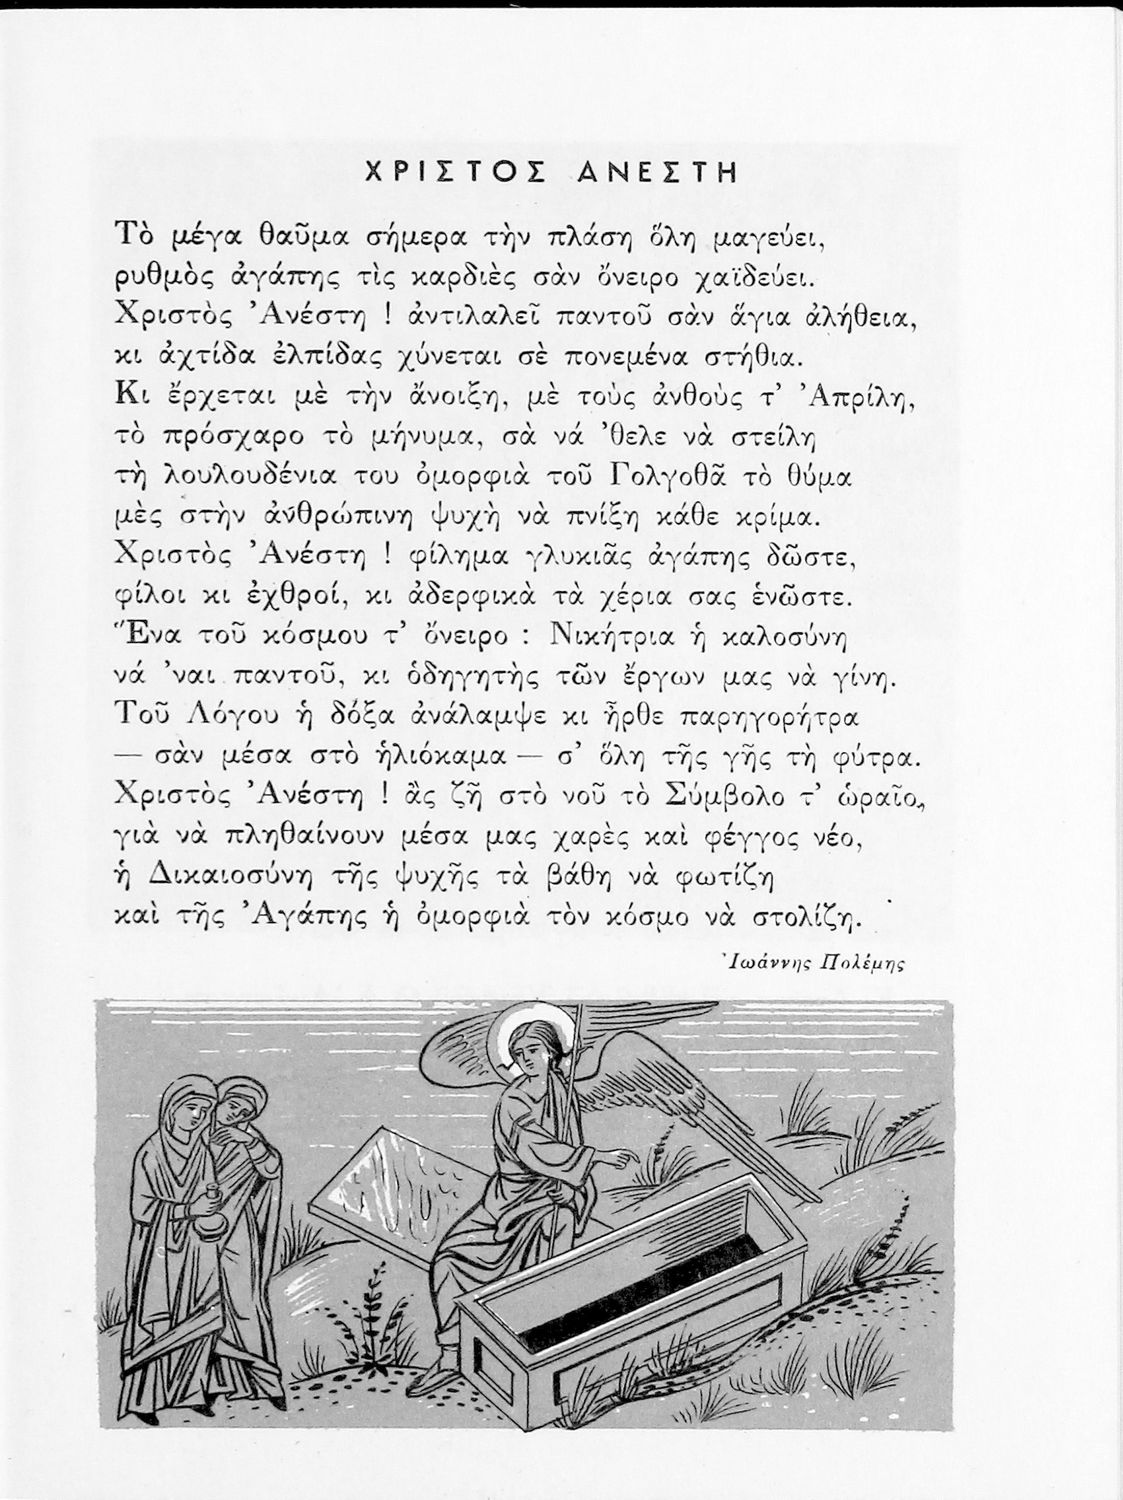 ΧΡΙΣΤΟΣ ΑΝΕΣΤΗ
Τὸ μέγα θαῦμα σήμερα τὴν πλάση ὅλη μαγεύει,
ρυθμὸς ἀγάπης τὶς καρδιὲς σὰν ὄνειρο χαϊδεύει.
Χριστὸς Ἀνέστη ! ἀντιλαλεῖ παντοῦ σὰν ἅγια ἀλήθεια,
κι ἀχτίδα ἐλπίδας χύνεται σὲ πονεμένα στήθια.
Κι ἔρχεται μὲ τὴν ἄνοιξη, μὲ τοὺς ἀνθοὺς τ’ Ἀπρίλη,
τὸ πρόσχαρο τὸ μήνυμα, σὰ νά ’θελε νὰ στείλη
τὴ λουλουδένια του ὀμορφιὰ τοῦ Γολγοθᾶ τὸ θύμα
μὲς στὴν ἀνθρώπινη ψυχὴ νὰ πνίξη κάθε κρίμα.
Χριστὸς Ἀνέστη ! φίλημα γλυκιᾶς ἀγάπης δῶστε,
φίλοι κι ἐχθροί, κι ἀδερφικὰ τὰ χέρια σας ἑνῶστε.
Ἕνα τοῦ κόσμου τ’ ὄνειρο : Νικήτρια ἡ καλοσύνη
νά ’ναι παντοῦ, κι ὁδηγητὴς τῶν ἔργων μας νὰ γίνη.
Τοῦ Λόγου ἡ δόξα ἀνάλαμψε κι ἦρθε παρηγορήτρα
— σὰν μέσα στὸ ἡλιόκαμα — σ’ ὅλη τῆς γῆς τὴ φύτρα.
Χριστὸς Ἀνέστη ! ἂς ζῆ στὸ νοῦ τὸ Σύμβολο τ’ ὡραῖο,
γιὰ νὰ πληθαίνουν μέσα μας χαρὲς καὶ φέγγος νέο,
ἡ Δικαιοσύνη τῆς ψυχῆς τὰ βάθη νὰ φωτίζη
καὶ τῆς Ἀγάπης ἡ ὀμορφιὰ τὸν κόσμο νὰ στολίζη.
Ἰωάννης Πολέμης